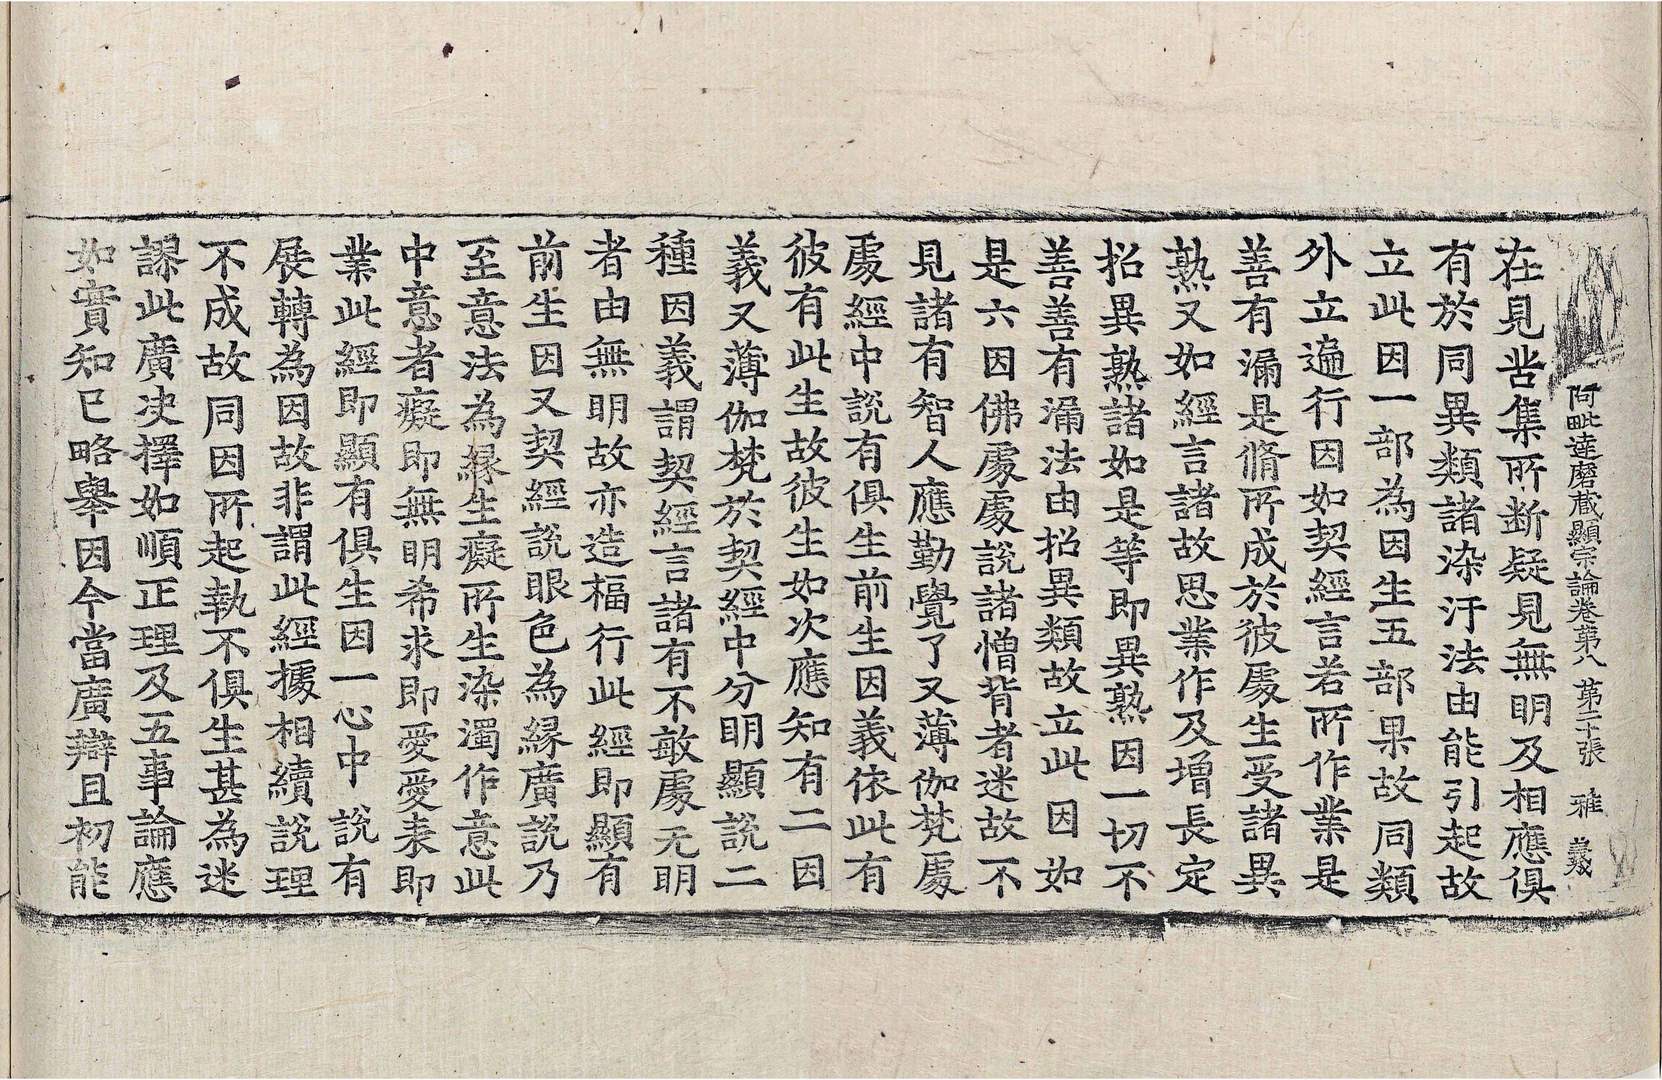 阿毗達磨蔵顯宗論卷第八 第二十張 雅 義
在見苦集所断疑見無明及相應俱
有於同異類諸染汙法由能引起故
立此因一部為因生五部果故同類
外立遍行因如契經言若所作業是
善有漏是脩所成於彼處生受諸異
熟又如經言諸故思業作及增長定
招異熟諸如是等即異熟因一切不
善善有漏法由招異類故立此因如
是六因佛處處說諸憎背者迷故不
見諸有智人應勤覺了又薄伽梵處
處經中說有俱生前生因義依此有
彼有此生故彼生如次應知有二因
義又薄伽梵於契經中分明顯說二
種因義謂契經言諸有不敏處无明
者由無明故亦造福行此經即顯有
前生因又契經說眼色為緣廣說乃
至意法為緣生癡所生染濁作意此
中意者癡即無明希求即愛愛表即
業此經即顯有俱生因一心中說有
展轉為因故非謂此經據相續說理
不成故同因所起執不俱生甚為迷
謬此廣決擇如順正理及五事論應
如實知已略舉因今當廣辯且初能